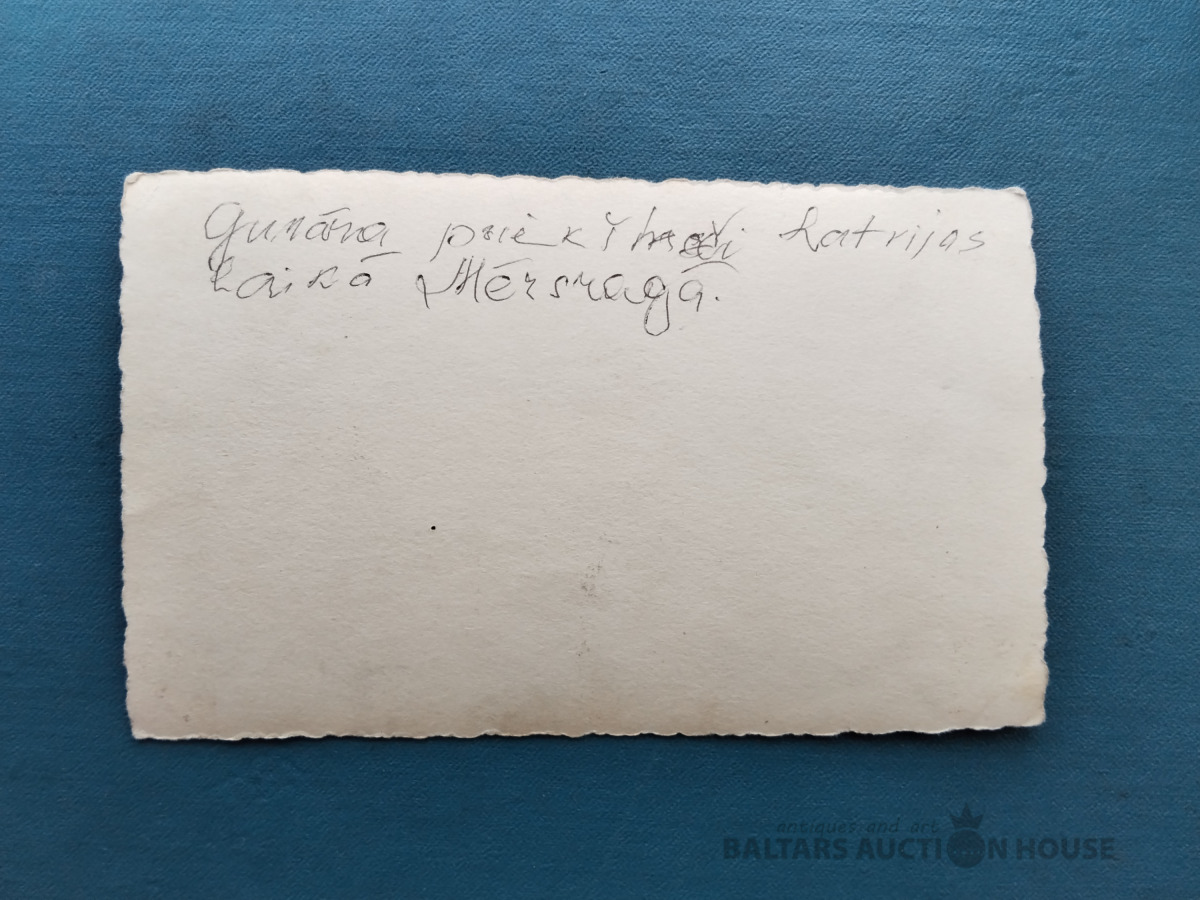 Gunāra priekšteči Latvijas
laikā Mērsragā.
antiques and art
BALTARS AUCTION HOUSE